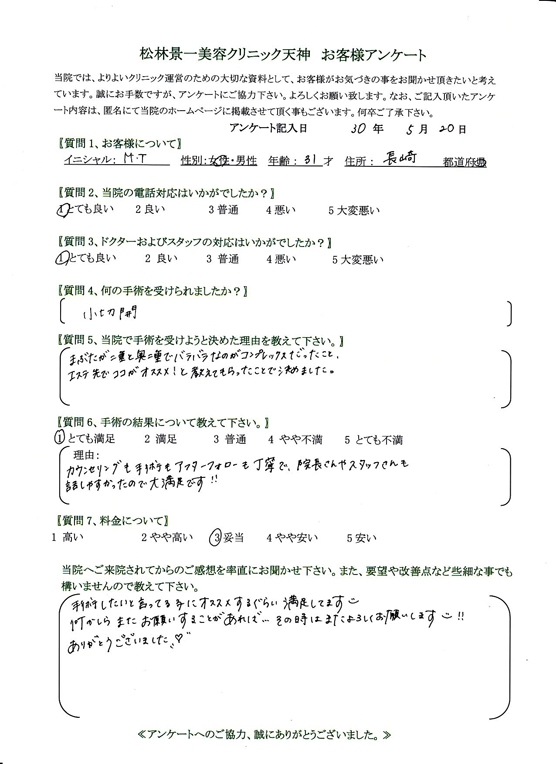 松林景一美容クリニック天神 お客様アンケート
当院では、よりよいクリニック運営のための大切な資料として、お客様がお気づきの事をお聞かせ頂きたいと考え
ています。誠にお手数ですが、アンケートにご協力下さい。よろしくお願い致します。なお、ご記入頂いたアンケ
ート内容は、匿名にて当院のホームページに掲載させて頂く事もございます。何卒ご了承下さい。
アンケート記入日 30 年 5 月 20 日
〖質問1、お客様について〗
イニシャル: M.T 性別:女性・男性 年齢: 31 才 住所: 長崎 都道府県
〖質問2、当院の電話対応はいかがでしたか?〗
1 とても良い 2 良い 3 普通 4 悪い 5 大変悪い
〖質問3、ドクターおよびスタッフの対応はいかがでしたか?〗
1 とても良い 2 良い 3 普通 4 悪い 5 大変悪い
〖質問4、何の手術を受けられましたか?〗
小切開
〖質問5、当院で手術を受けようと決めた理由を教えて下さい。〗
まぶたが二重と奥二重でバラバラなのがコンプレックスだったこと、
エステ先でココがオススメ!と教えてもらったことで決めました。
〖質問6、手術の結果について教えて下さい。〗
1 とても満足 2 満足 3 普通 4 やや不満 5 とても不満
理由:
カウンセリングも手術もアフターフォローも丁寧で、院長さんやスタッフさんも
話しやすかったので大満足です!!
〖質問7、料金について〗
1 高い 2 やや高い 3 妥当 4 やや安い 5 安い
当院へご来院されてからのご感想を率直にお聞かせ下さい。また、要望や改善点など些細な事でも
構いませんので教えて下さい。
手術したいと言ってる子にオススメするぐらい満足してます
何かしらまたお願いすることがあれば… その時はまたよろしくお願いします!!
ありがとうございました♡
≪アンケートへのご協力、誠にありがとうございました。≫